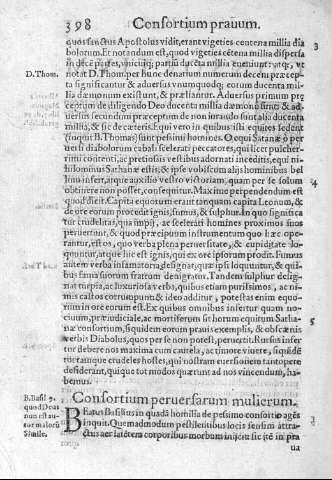 398 Consortium prauum.
quos sanctus Apostolus vidit, erant vigeties centena millia dia
bolorum. Et notandum est, quod vigeties cētena millia dispersa
in decē partes, vnicuiq; partiū ducēta millia eueniunt: vtq; vt
D. Thom. notat D. Thom. per hunc denarium numerum decem præcep
ta significantur & aduersus vnumquodq; eorum ducenta mil
lia dæmonum existunt, & præliantur. Aduersus primum præ
ceptum de diligendo Deo ducenta millia dæmonū sunt: & ad
uersus secundum præceptum de non iurando sunt alij ducenta
millia, & sic de cæteris. Equi vero in quibus isti equites sedent
(inquit B. Thomas) sunt pessimi homines. O equi Satanæ ô per
uersi diabolorum caballi scelerati peccatores, qui licet pulcher-
rimi contenti, ac pretiosis vestibus adornati inceditis, equi ni-
hilominus Sathanæ estis; & ipse vobiscum alijs hominibus bel
lum infert, atque auxilio vestro victoriam, quam per se solum
obtinere non posset, consequitur. Maxime perpendendum est
quod dicit. Capita equorum erant tanquam capita Leonum, &
de ore eorum procedit ignis, fumus, & sulphur. In quo significa
tur crudelitas, qua impij, ac scelerati homines proximos suos
persequuntur, & quod præcipuum instrumentum quo hæc ope-
rantur, est os, quo verba plena peruersitate, & cupiditate lo-
quuntur, atque hic est ignis, qui ex ore ipsorum prodit. Fumus
autem verba infamatoria designat, quæ ipsi loquuntur, & qui
bus famā suorum fratrum denigrant. Tandem sulphur desig-
nat turpia, ac luxuriosa verba, quibus etiam purissimos, ac ni-
mis castos corrumpunt & ideo additur, potestas enim equo-
rum in ore eorum est. Ex quibus omnibus infertur quam no-
cuum, præiudiciale, ac mortiferum sit horum equitum Satha-
næ consortium, siquidem eorum prauis exemplis, & obscænis
verbis Diabolus, quos per se non potest, peruertit. Rursus infer
tur debere nos maxima cum cautela, ac timore viuere, siquidē
tot tanque crudeles hostes, qui nostram euersionem tantopere
desiderant, quique tot modos quærunt ad nos vincendum, ha-
bemus.
B. Basil 9. Consortium peruersarum mulierum.
quod Deus BEatus Basilius in quadā homilia de pesimo consortio agēs
non est au- Inquit. Quemadmodum pestilentibus locis sensim attra-
tor malorū ctus aer latētem corporibus morbum inijcit: sic itē in pra
Simile. ua
3
4
5